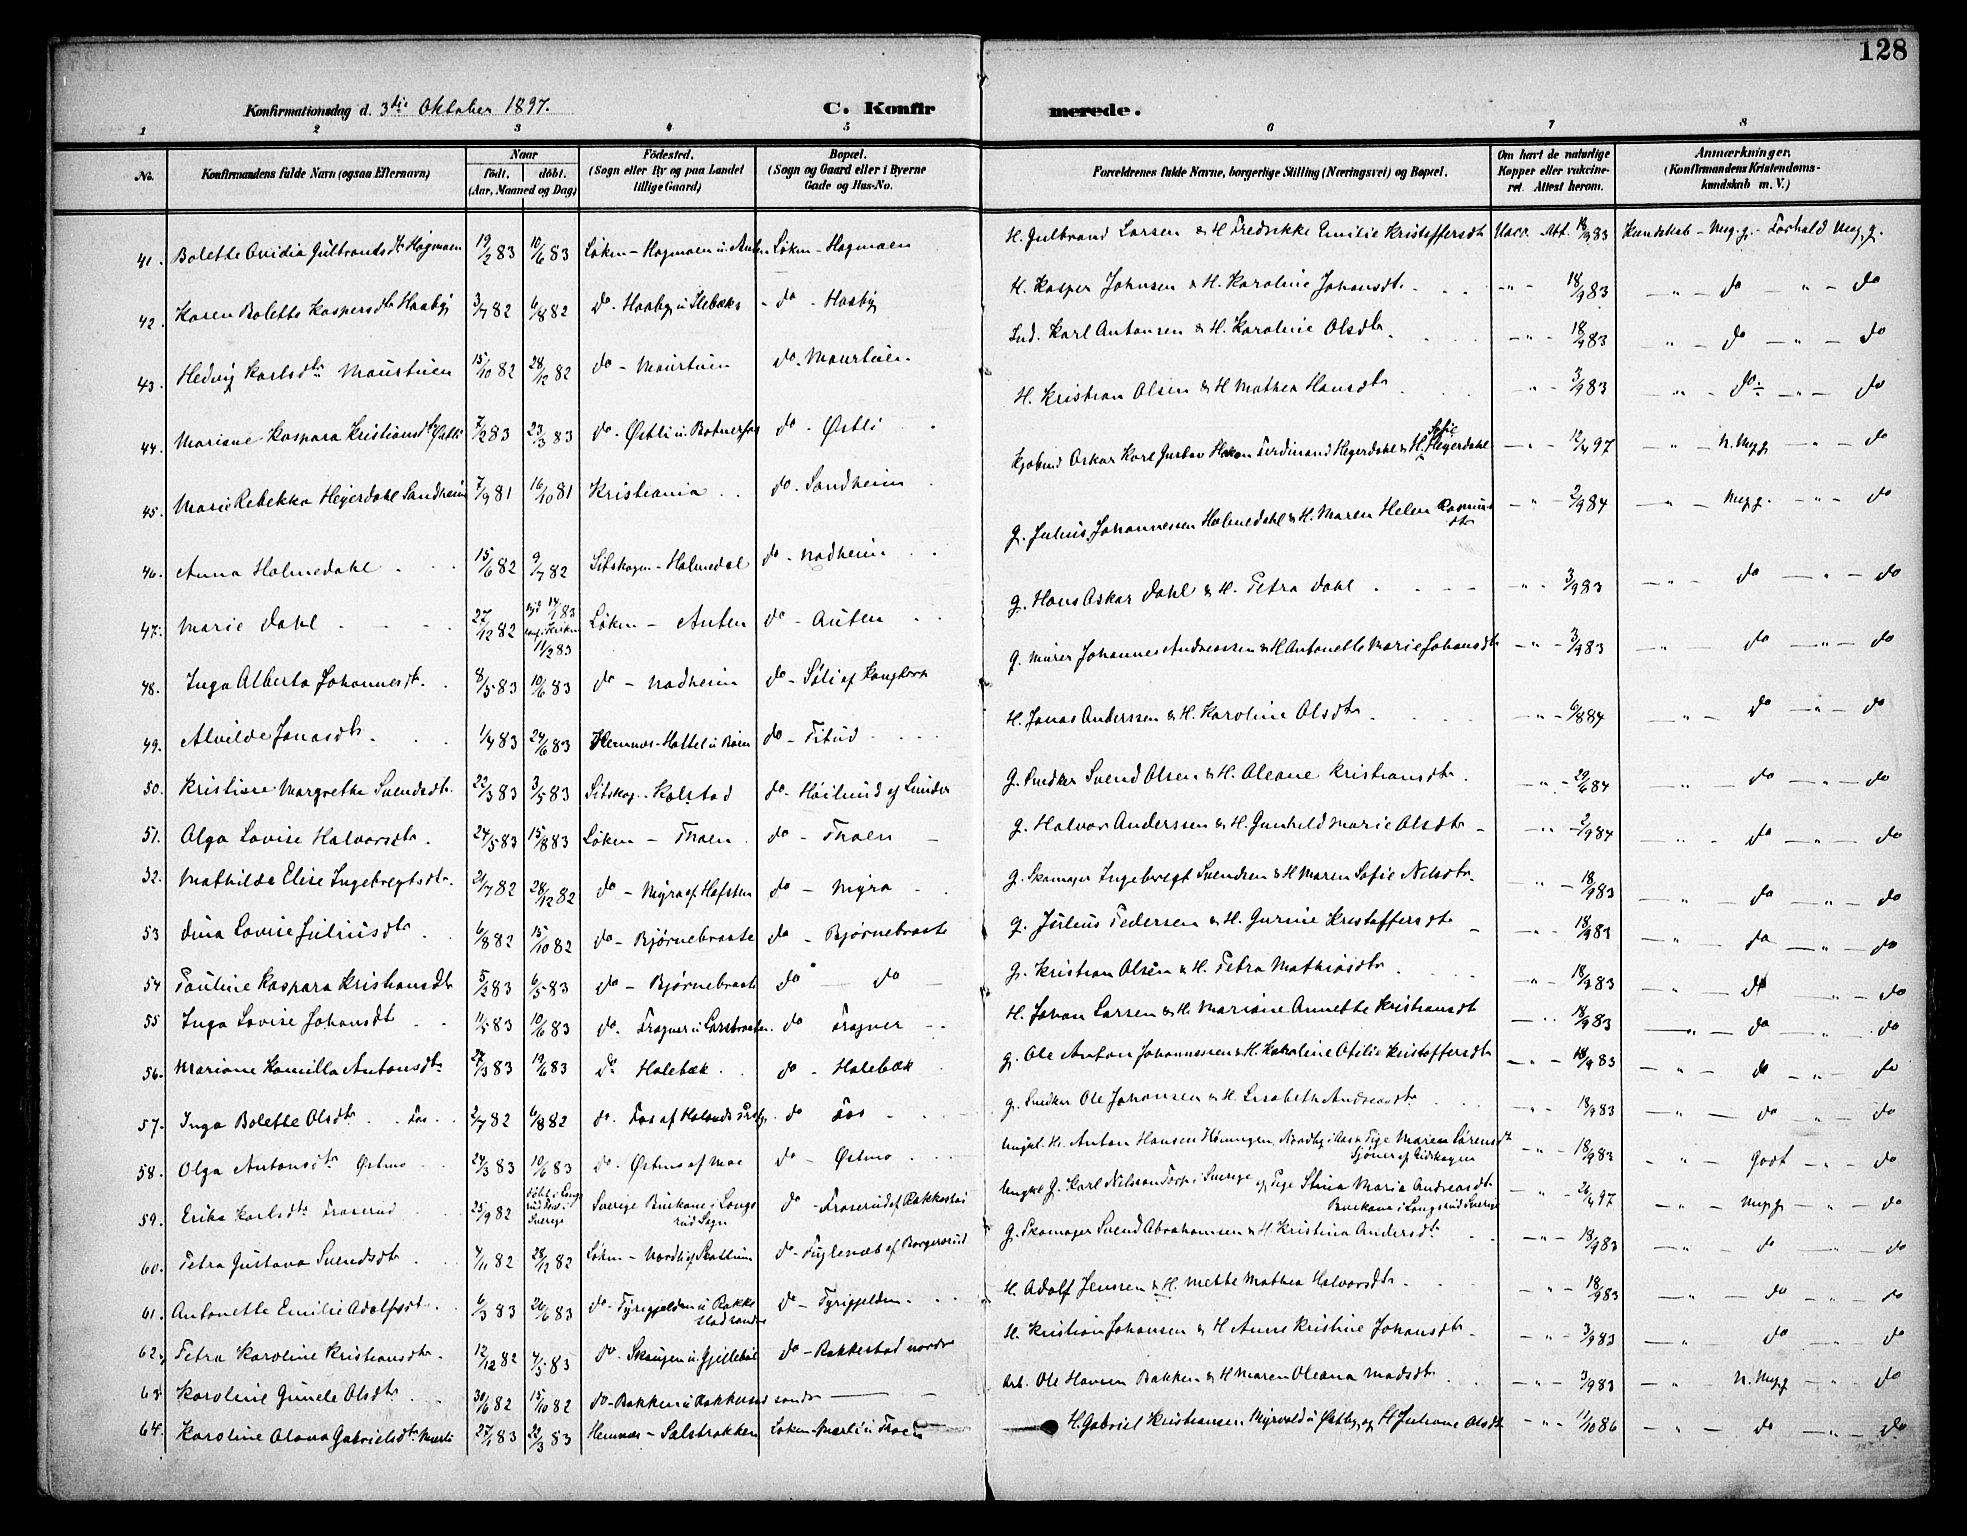 128
Konfirmationsdag d. 3die Oktober 1897. C. Konfirmerede.
1 2 3 4 5 6 7 8
No. Konfirmandens fulde Navn (ogsaa Efternavn) Naar født. døbt. (Aar, Maaned og Dag) Fødested. (Sogn eller By og paa Landet tillige Gaard) Bopæl. (Sogn og Gaard eller i Byerne Gade og Hus-No. Forældrenes fulde Navne, borgerlige Stilling (Næringsvei) og Bopæl. Om havt de naturlige Kopper eller vakcineret. Attest herom. Anmærkninger. (Konfirmandens Kristendomskundskab m. V.)
41. Bolette Ovidia Gulbrandsdtr Hagmoen 19/2 83 10/6 83 Løken - Hagmoen u. Løken - Hagmoen H. Gulbrand Larsen & H Fredrikke Emilie Kristoffersdt Vacc. Att. 83 Kundskab - Meg.g. - Forhold Meg.g.
42. Karen Bolette Kaspersdtr Haaby 3/7 82 6/8 82 do - Haaby u Ilebæks - do - Haaby H. Kasper Johnsen & H. Karoline Johansdtr. - " - 18/9 83 - " - do - " - do
43. Hedvig Karlsdtr Maurtuen 15/10 82 28/12 82 do - Maurtuen do - Maurtuen. Ind. Karl Antonsen & H. Karoline Olsdtr. - " - 18/9 83 - " - do - " - do
44. Mariane Kaspara Kristiansdtr Østli 7/2 83 23/3 83 do - Østli u. do - Østli H. Kristian Olsen & H Mathea Hansdtr - " - 3/9 83 - " - do - " - do
45. Marie Rebekka Heyerdahl Sandheim 7/9 81 16/10 81 Kristiania do - Sandheim Oskar Karl Gustav Hakon Ferdinand Heyerdahl & H. Sofie Heyerdahl - " - 12/4 97 - " - N. Megg - " - do
46. Anna Holmedahl 15/6 82 9/7 82 Sitskogen - Holmedal do - Nadheim G. Julius Johannessen Holmedahl & H. Maren Helene Rasmusdtr - " - 2/9 84 - " - Megg. - " - do
47. Marie Dahl 27/12 82 14/1 83 11/2 83 Løken - Auten do - Auten G. Hans Oskar Dahl & H. Petra Dahl - " - 3/9 83 - " - do - " - do
48. Inga Alberta Johannesdtr. 8/5 83 10/6 83 do - Nadheim do - Søli af G. Murer Johannes Andreassen & H Antonette Marie Johansdtr - " - 3/9 83 - " - do - " - do
49. Alvilde Jonasdtr. 1/4 83 24/6 83 Hemnæs - Hottel u do - Titud H. Jonas Anderssen & H. Karoline Olsdtr - " - 6/8 84 - " - do - " - do
50. Kristine Margrethe Svendsdtr. 22/3 83 3/5 83 Sitskog. - Kolstad do - Høilund af Lunder G. Snedker Svend Olsen & H. Oleane Kristiansdtr. - " - 29/6 84 - " - do - " - do
51. Olga Lovise Halvorsdtr. 24/5 83 15/8 83 Løken - Thoen do - Thoen G. Halvor Anderssen & H. Gunhild Marie Olsdtr - " - 2/9 84 - " - do - " - do
52. Mathilde Elise Ingebregtsdtr. 21/7 82 28/12 82 do - Myra af Hofsten do - Myra G. Skomager Ingebregt Svendsen & H Maren Sofie Nilsdtr - " - 18/9 83 - " - do - " - do
53 Dina Lovise Juliusdtr 6/8 82 15/10 82 do - Bjørnebraate do - Bjørnebraate G. Julius Pedersen & H. Gurine Kristoffersdtr - " - 18/9 83 - " - do - " - do
54 Pauline Kaspara Kristiansdtr 5/2 83 6/5 83 do - Bjørnebraate do - do G. Kristian Olsen & H. Petra Mathiasdtr - " - 18/9 83 - " - do - " - do
55 Inga Lovise Johansdtr 11/5 83 10/6 83 do - Fragner u. do Fragner H. Johan Larsen & H. Mariane Annette Kristiansdt - " - 18/9 83 - " - do - " - do
56. Mariane Kamilla Antonsdtr 27/3 83 19/6 83 do Holebæk do - Holebæk G. Ole Anton Johannessen & H. Karoline Otilie Kristoffersdtr - " - 18/9 83 - " - do - " - do
57. Inga Bolette Olsdtr Fos 2/7 82 6/8 82 do - Fos af do Fos G. Snedker Ole Johansen & H. Lisabeth Andreasdtr - " - 18/9 83 - " - do - " - do
58. Olga Antonsdtr Østmo 24/3 83 10/6 83 do - Østmo af Moe do - Østmo Ungkl. Anton Hansen og Pige Maren Sørensdt - " - 18/9 83 - " - Godt - " - do
59. Erika Karlsdtr Froserud 25/9 82 døbt i Sverige Sverige i Longsrud Sogn do - Froserud af Rakkestad Ungkl G. Karl Nilsson Torp i Sverige og Pige Stina Maria Andreasdtr i Longsrud Sverige - " - 26/4 97 - " - Megg - " - do
60. Petra Gustava Svendsdtr 4/11 82 28/12 82 Løken - Nordli af do - Fuglenæb af Borgerud G. Skomager Svend Abrahamsen & H Kristina Andersdtr - " - 18/9 83 - " - do - " - do
61. Antonette Emilie Adolfsdtr. 6/3 83 26/6 83 do - Fyrigjelden u Rakkestad søndre do - Fyrigjelden. H. Adolf Jenssen & H. Mette Mathea Halvorsdtr. - " - 18/9 83 - " - do - " - do
62. Petra Karoline Kristiansdtr. 12/12 82 4/3 83 do - Skaugen u. Gjillebøl do - Rakkestad nordre H. Kristian Johansen & H Anne Kristine Johansdtr - " - 3/9 83 - " - do - " - do
63. Karoline Gunele Olsdtr. 30/6 82 15/10 82 do - Bakken u Rakkestad søndr Arb. Ole Hansen Bakken & H Maren Oleana Madsdtr - " - 3/9 83 - " - N. Megg - " - do
64. Karoline Olava Gabrielsdtr. Mørli 27/1 83 22/3 83 Hemnæs - Salsbrakken Løken - Mørli u Thoen H. Gabriel Kristiansen Myrvold u Østby og H Juliane Olsdtr - " - 11/10 86 - " - do - " - do